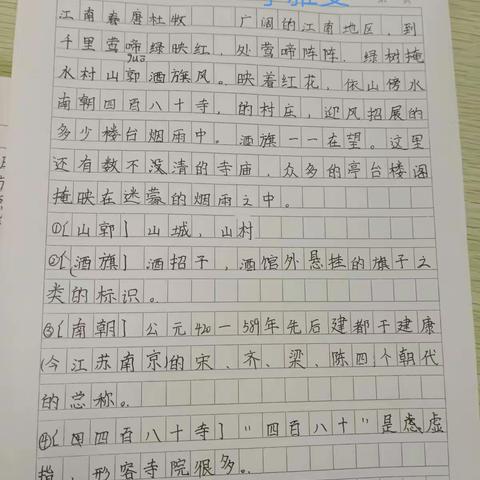 江南春唐杜牧 广阔的江南地区，到
千里莺啼绿映红，处莺啼阵阵，绿树掩
guō
水村山郭酒旗风。映着红花，依山傍水
南朝四百八十寺，的村庄，迎风招展的
多少楼台烟雨中。酒旗一一在望。这里
还有数不清的寺庙，众多的亭台楼阁
掩映在迷蒙的烟雨之中。
①[山郭] 山城，山村
②[酒旗] 酒招子，酒馆外悬挂的旗子之
类的标识。
③[南朝] 公元420—589年先后建都于建康
(今江苏南京)的宋、齐、梁、陈四个朝代
的总称。
④[四百八十寺] "四百八十"是虚
指，形容寺院很多。